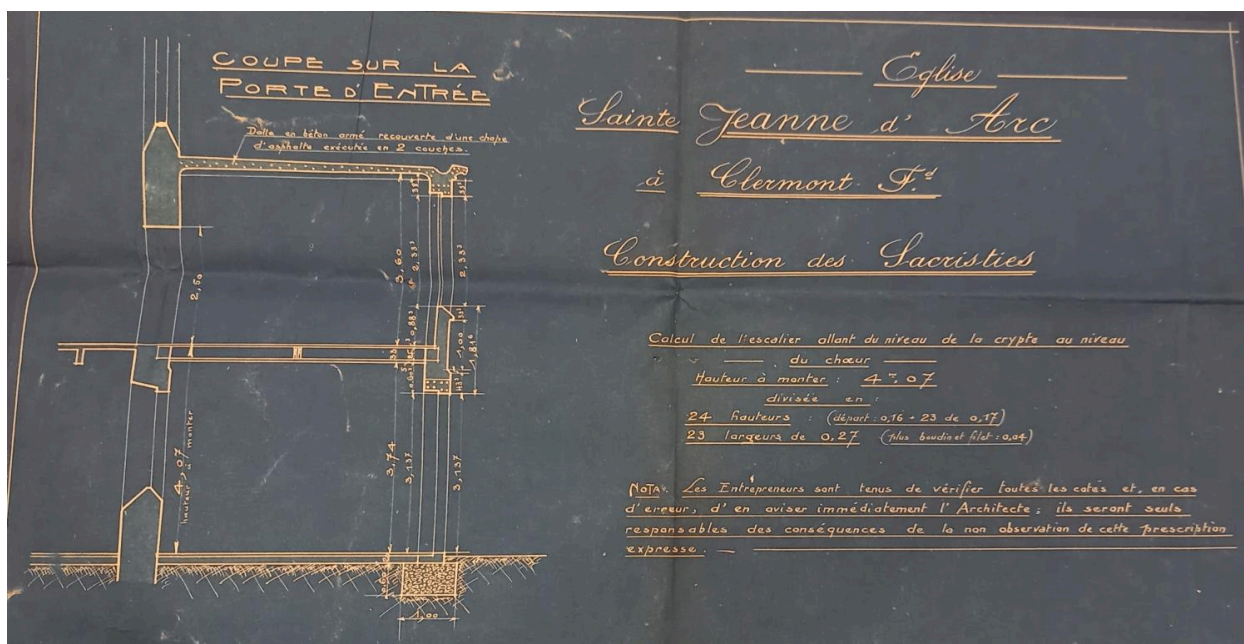 COUPE SUR LA
PORTE D'ENTRÉE
Dalle en béton armé recouverte d'une chape
d'asphalte exécutée en 2 couches.
2,50
3,60
2,33³
2,33³
0,88³
1,00
1,81⁶
33
4,07
hauteur à monter
3,74
3,137
3,137
1,00
Eglise
Sainte Jeanne d'Arc
à Clermont Fd
Construction des Sacristies
Calcul de l'escalier allant du niveau de la crypte au niveau
" " — du chœur —
Hauteur à monter : 4m,07
divisée en :
24 hauteurs : (départ : 0,16 + 23 de 0,17)
23 largeurs de 0,27 (plus boudin et filet : 0,04)
NOTA. Les Entrepreneurs sont tenus de vérifier toutes les cotes et, en cas
d'erreur, d'en aviser immédiatement l'Architecte ; ils seront seuls
responsables des conséquences de la non observation de cette prescription
expresse. —